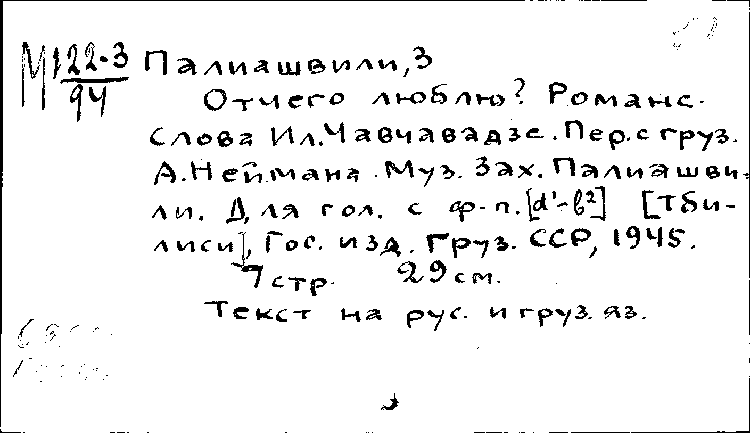 М122-3 Палиашвили, З
94
Отчего люблю? Романс.
Слова Ил. Чавчавадзе. Пер. с груз.
А. Неймана. Муз. Зах. Палиашви-
ли. Для гол. с ф-п. [d¹-b²] [Тби-
лиси], Гос. изд. Груз. ССР, 1945.
7 стр. 29 см.
Текст на рус. и груз. яз.